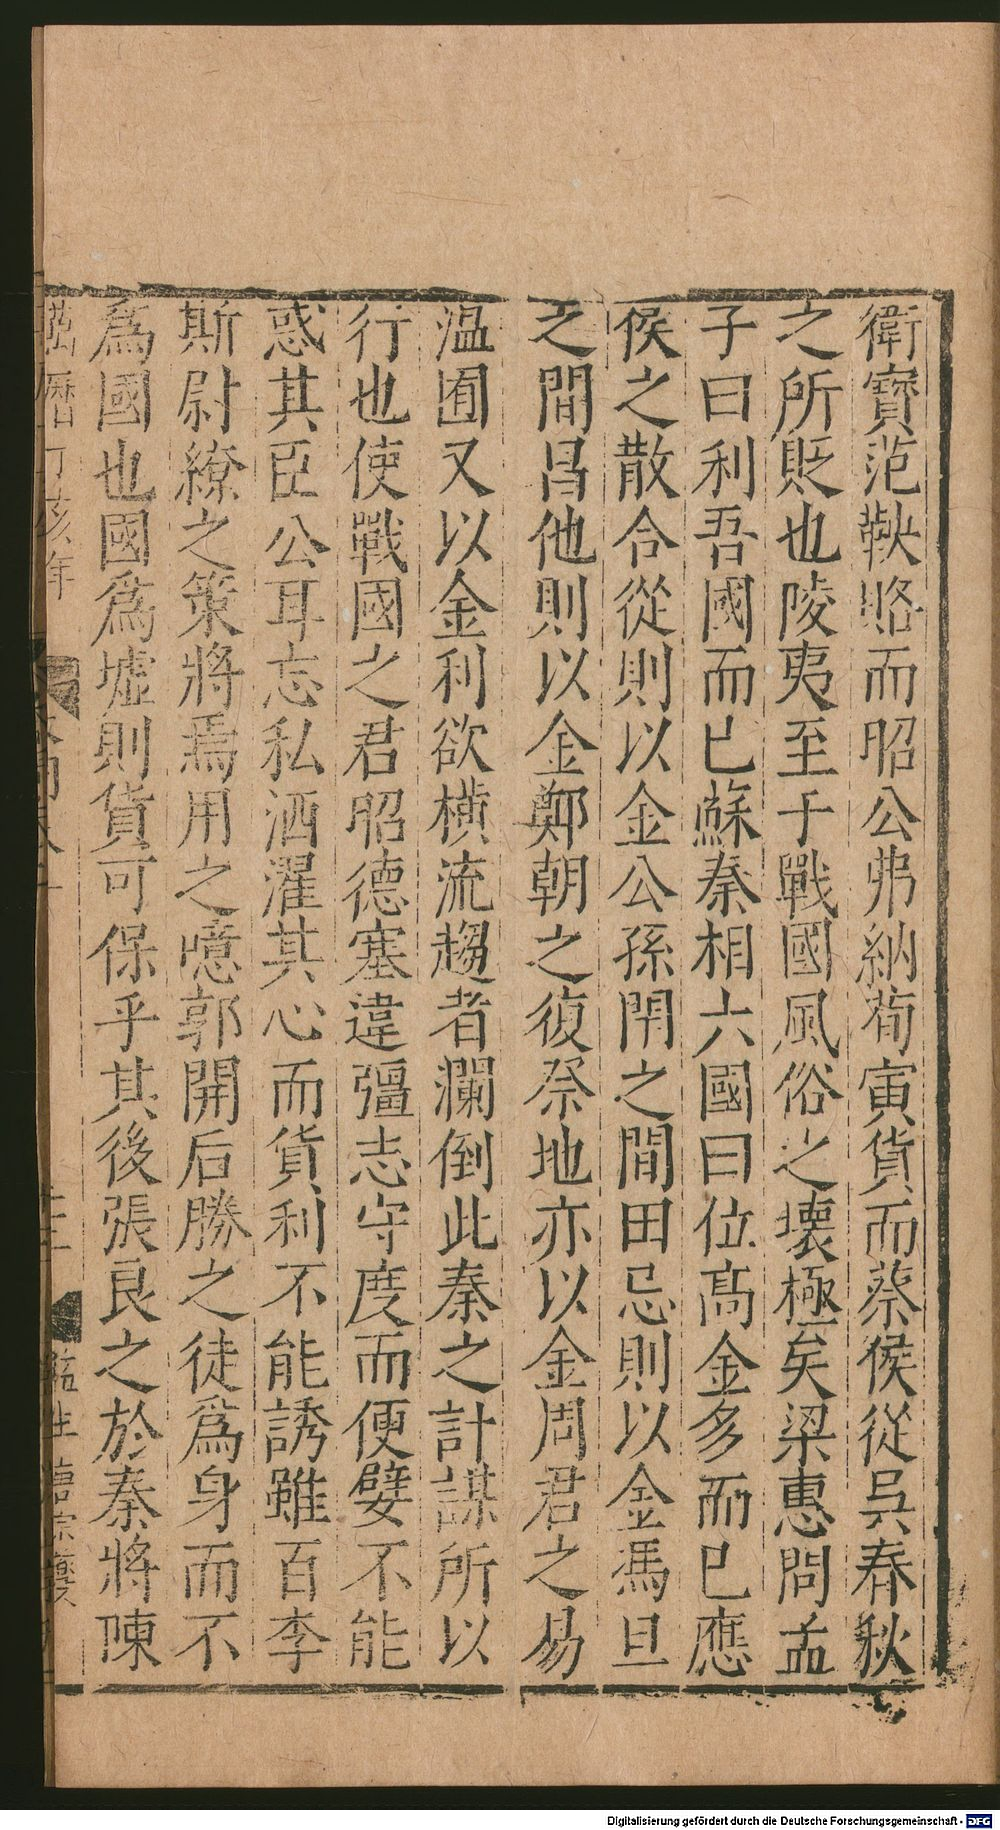 衛寶范鞅賂而昭公弗納荀寅貨而蔡侯從吳春秋
之所貶也陵夷至于戰國風俗之壞極矣梁惠問孟
子曰利吾國而已蘇秦相六國曰位高金多而已應
侯之散合從則以金公孫閈之間田忌則以金馮旦
之間昌他則以金鄭朝之復祭地亦以金周君之易
溫囿又以金利欲橫流趨者瀾倒此秦之計謀所以
行也使戰國之君昭德塞違彊志守度而便嬖不能
惑其臣公耳忘私洒濯其心而貨利不能誘雖百李
斯尉繚之策將焉用之噫郭開后勝之徒爲身而不
爲國也國爲墟則貨可保乎其後張良之於秦將陳
萬曆丁亥年
監生唐
Digitalisierung gefördert durch die Deutsche Forschungsgemeinschaft - DFG